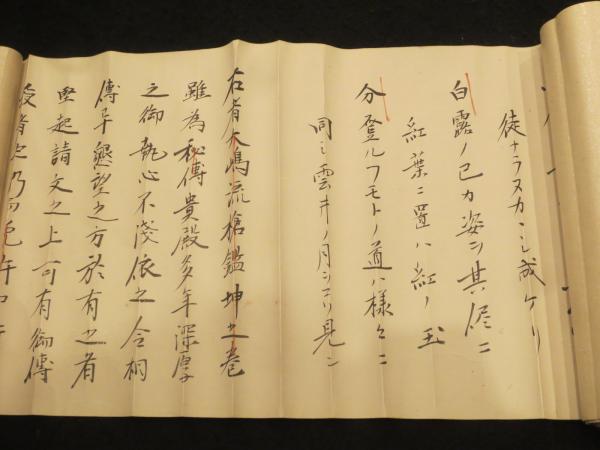 徒ナラヌカ 成ケリ
白露ノ己カ姿ヲ其侭ニ
紅葉ニ置ハ紅ノ玉
分登ルフモトノ道ハ様々ニ
同シ雲井ノ月ヲ見ン
右者大嶋流槍鑑坤之巻
雖為秘傳貴殿多年深厚
之御執心不淺依之令相
傳畢懇望之方於有之者
堅起請文之上可有御傳
授者也仍而免許如件